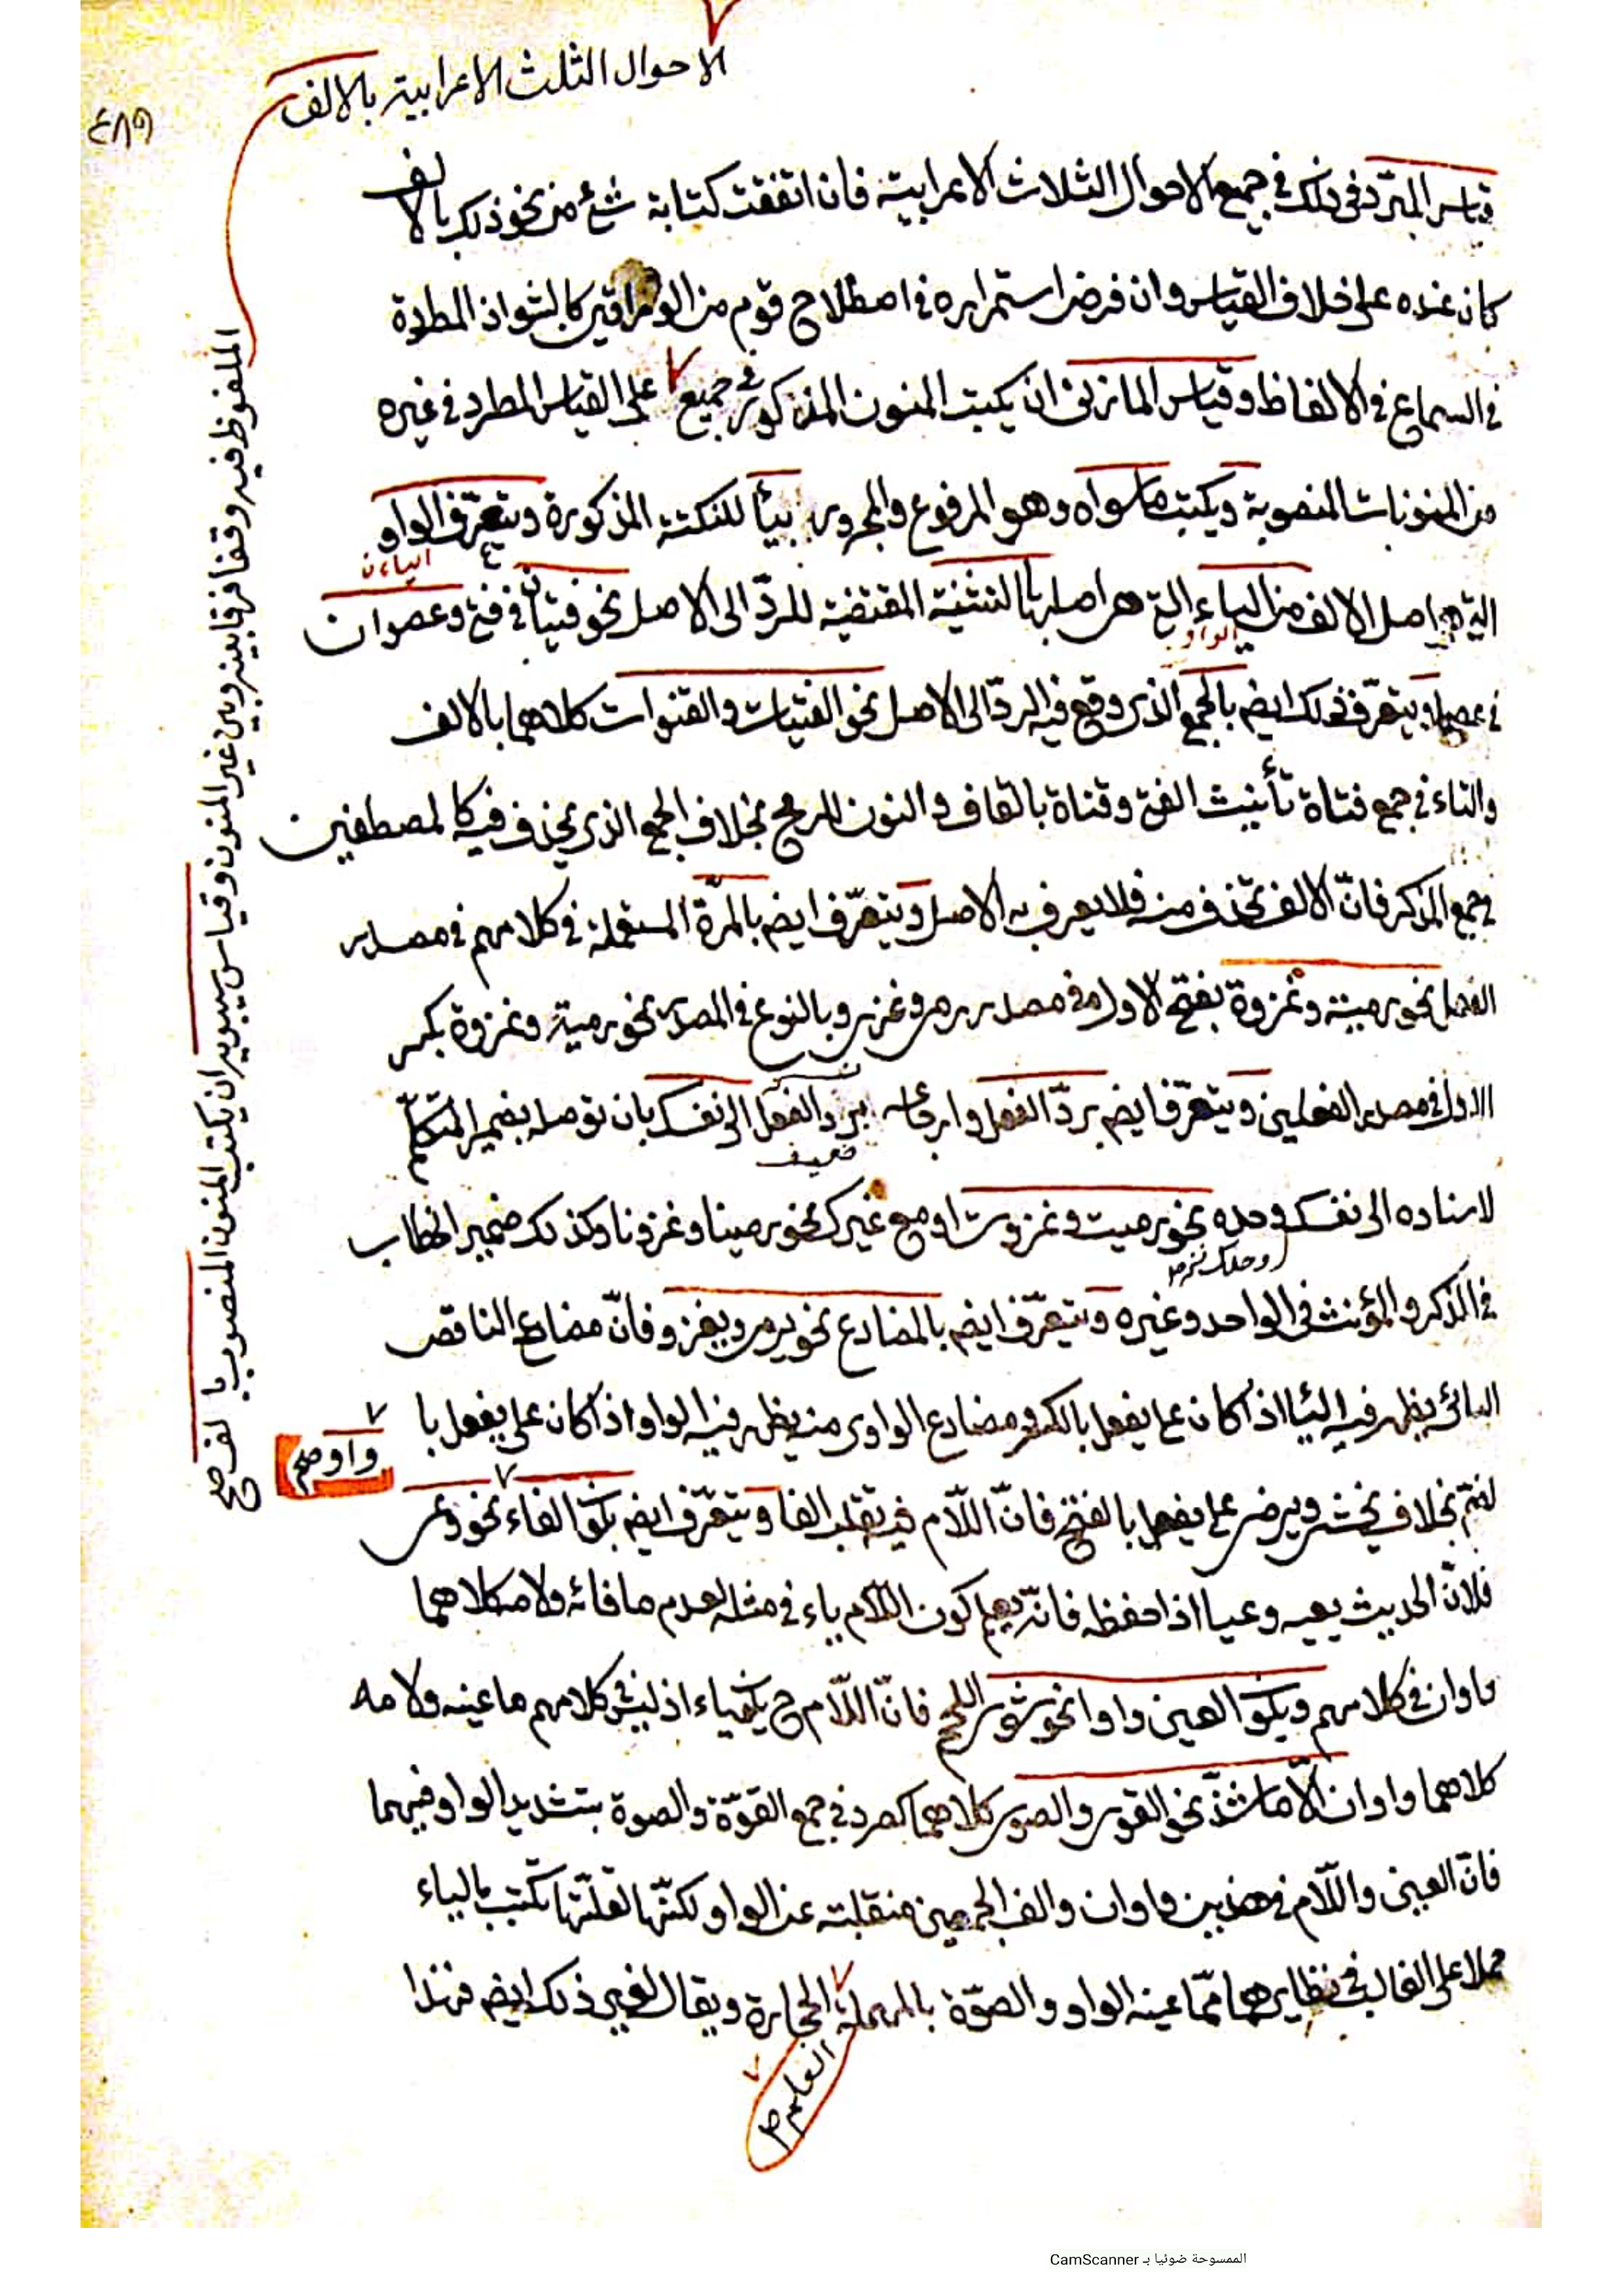 الاحوال الثلث الاعرابية بالالف
٤٨٩
قياس المبرّد فى ذلك فى جميع الاحوال الثلاث الاعرابية فان اتفقت كتابة شئ من نحو ذلك بالالف
كان عنده على خلاف القياس وان فرض استمراره فى اصطلاح قوم من الوراقين كالشواذ المطردة
فى السماع فى الالفاظ وقياس المازنى ان يكتب المنون المذكور فى جميع على القياس المطرد فى غيره
من المنونات المنصوبة ويكتب ما سواه وهو المرفوع والمجرور بياً للنكتة المذكورة ويتعرّف الواو
الياء ن
التى هى اصل الالف من الياء التى هى اصلها بالتثنية المقتضية للردّ الى الاصل نحو فتيان فى فتى وعصوان
الواو
فى عصا ويتعرّف ذلك ايضم بالجمع الذى وقع فيه الردّ الى الاصل نحو الفتيات والقنوات كلاهما بالالف
والتاء فى جمع فتاة تأنيث الفتى وقناة بالقاف والنون للرمح بخلاف الجمع الذى يحذف فيه كالمصطفين
فى جمع المذكر فانّ الالف يحذف منه فلا يعرف به الاصل ويتعرّف ايضم بالمرّة المستعملة فى كلامهم فى مصدر
الفعل نحو رمية وغزوة بفتح الاول فى مصدر رمى وغزى وبالنوع فى المصدر نحو رمية وغزوة بكسر
الاول فى مصدر الفعلين ويتعرّف ايضم بردّ الفعل وارجاعه بردّ الفعل الى نفسك بان توصله بضمير المتكلّم
لاسناده الى نفسك وحده نحو رميت وغزوت او مع غيرك نحو رمينا وغزونا وكذلك ضمير الخطاب
وحدك
فى المذكر والمؤنث فى الواحد وغيره ويتعرّف ايضم بالمضارع نحو يرمى ويغزو فانّ مضارع الناقص
اليائى يظهر فيه اليا اذا كان على يفعل بالكسر ومضارع الواوى منه يظهر فيه الواو اذا كان على يفعل با
واو صح
لضم بخلاف يخشى ويرضى على يفعل بالفتح فانّ اللّام فيه تقلب الفا ويتعرّف ايضم بكون الفاء نحو وعى
فلان الحديث يعيه وعيا اذا حفظه فانّه يعلم كون اللّام ياء فى مثله لعدم ما فائه ولامه كلاهما
واوان فى كلامهم وبكون العين واوا نحو شوى اللحم فانّ اللّام ح يكون ياء اذ ليس فى كلامهم ما عينه ولامه
كلاهما واوان الّا ما شذّ نحو القوى والصوى كلاهما كصرد فى جمع القوّة والصوة بتشديد الواو فيهما
فانّ العين واللّام فى هذين واوان والف الجمعين منقلبة عن الواو لكنّها لقلّتها تكتب بالياء
حملا على الغالب فى نظايرهما ممّا عينه الواو والصوّة بالمهملة الحجارة ويقال لغير ذلك ايضم فهذا
الملفوظ فيه وقفا فرقا بينه وبين غير المنون وقياس سيبويه ان يكتب المنون المنصوب بالف صح
الممسوحة ضوئيا بـ CamScanner